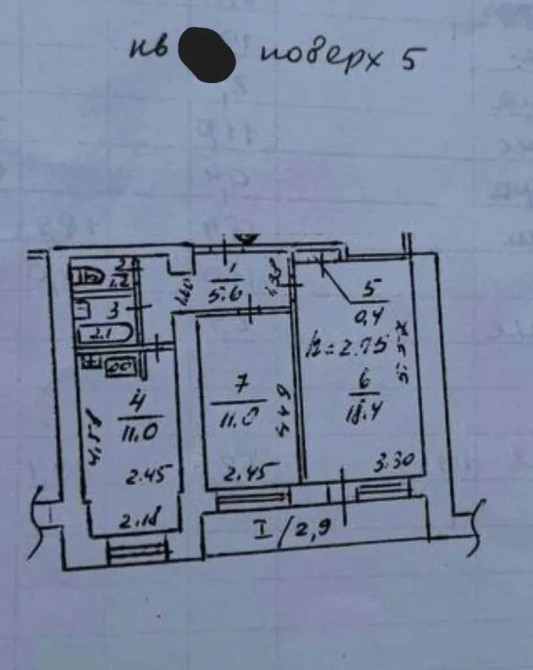 кв поверх 5
2
1.2
3
2.1
1
5.6
1.60
5
0,4
h=2.75
5.57
6
18.4
3.30
4
11.0
4.58
2.45
2.18
7
11.0
4.49
2.45
I/2,9